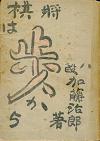 将棋
は
歩
から
八段
加藤治郎
著